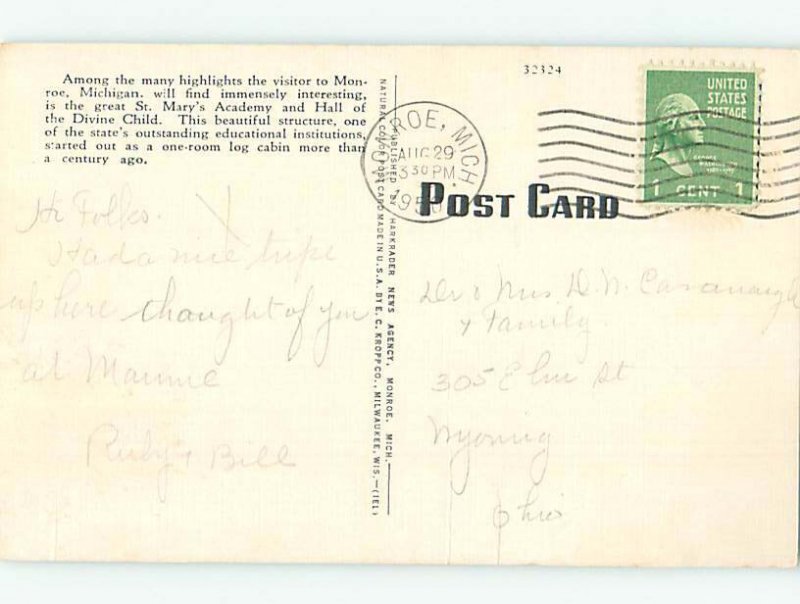 Among the many highlights the visitor to Mon-
roe, Michigan, will find immensely interesting,
is the great St. Mary's Academy and Hall of
the Divine Child. This beautiful structure, one
of the state's outstanding educational institutions,
started out as a one-room log cabin more than
a century ago.
Hi Folks.
Had a nice tripe
up here thought of you
at Maume
Ruby & Bill
PUBLISHED BY HARKRADER NEWS AGENCY, MONROE, MICH.
NATURAL COLOR POST CARD MADE IN U.S.A. BY E. C. KROPP CO., MILWAUKEE, WIS.—(IEL)
32324
MONROE, MICH.
AUG 29
3 30 PM
1950
UNITED
STATES
POSTAGE
GEORGE
WASHINGTON
1 CENT 1
POST CARD
& Mrs D. W. Cavanaugh
& Family
305 Elm St
Wyoming
Ohio